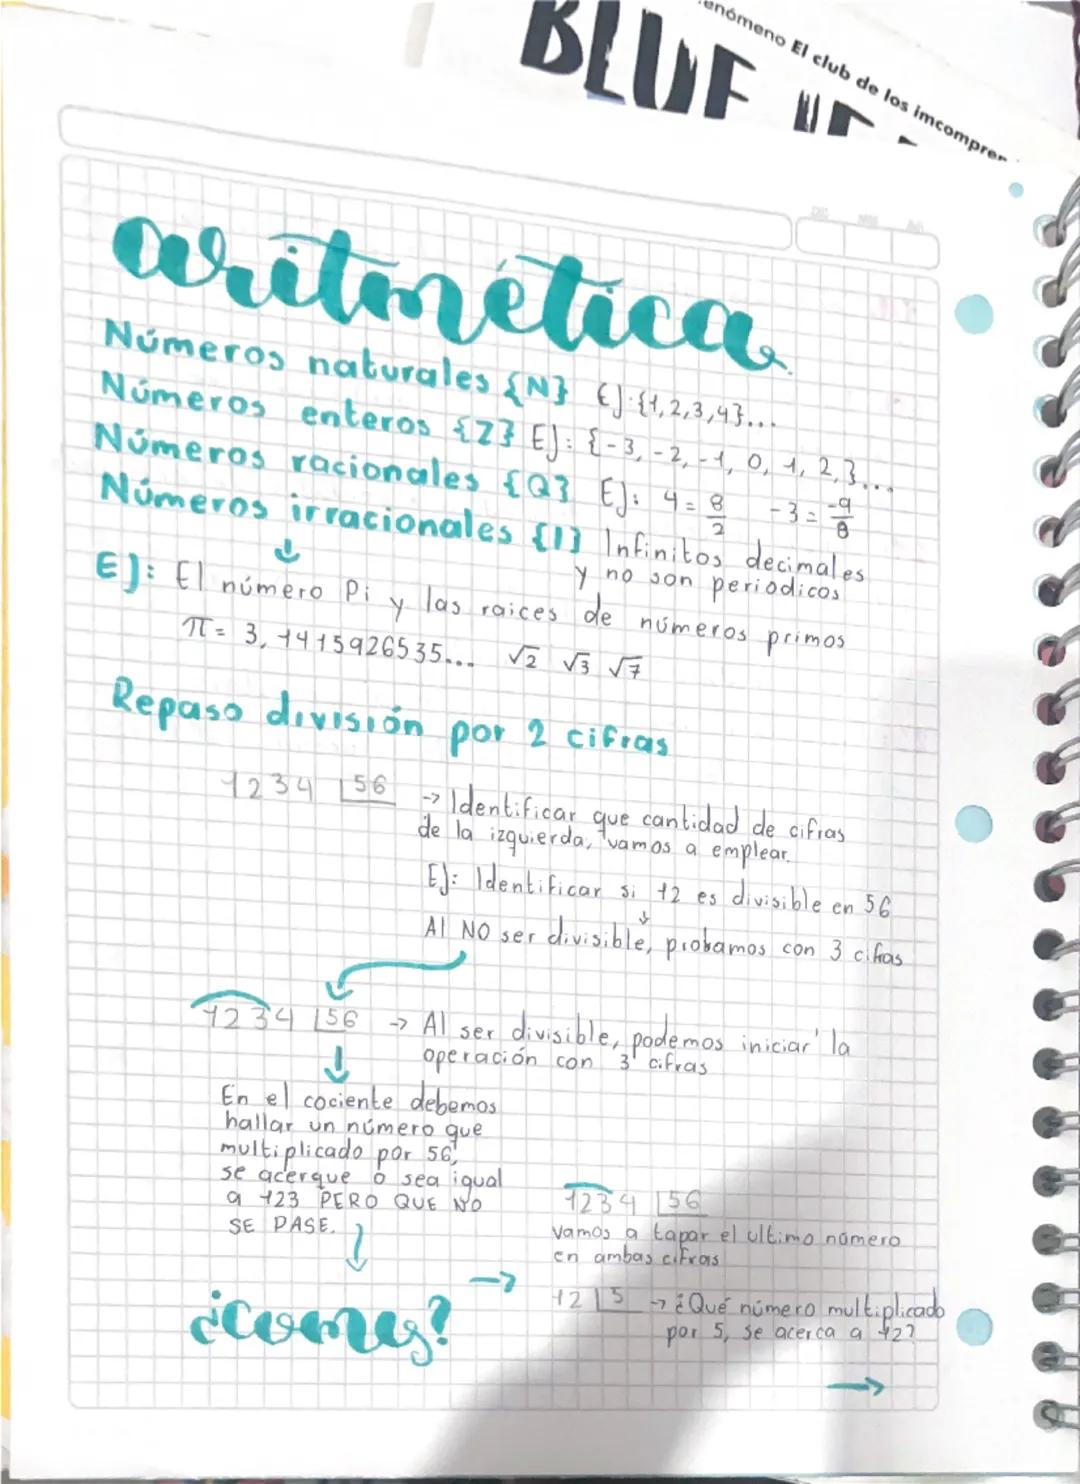 enómeno El club de los imcompren
BLUE
aritmética
Números naturales {N} Ej:{1,2,3,4}...
Números enteros {Z} Ej: {-3, -2, -1, 0, 1, 2,}...
Números racionales {Q} Ej: 4 = 8/2 -3 = -9/8
Números irracionales {I} Infinitos decimales
y no son periodicos
Ej: El número Pi y las raices de números primos
π = 3, 1415926535... √2 √3 √7
Repaso división por 2 cifras
1234 |56 → Identificar que cantidad de cifras
de la izquierda, vamos a emplear.
Ej: Identificar si 12 es divisible en 56
↓
Al NO ser divisible, probamos con 3 cifras
1234 |56 → Al ser divisible, podemos iniciar la
operación con 3 cifras
↓
En el cociente debemos
hallar un número que
multiplicado por 56,
se acerque o sea igual
a 123 PERO QUE NO
SE PASE.
¿Comes?
1234 |56
vamos a tapar el ultimo número
en ambas cifras
→ 12 |5 → ¿Qué número multiplicado
por 5, se acerca a 12?
→